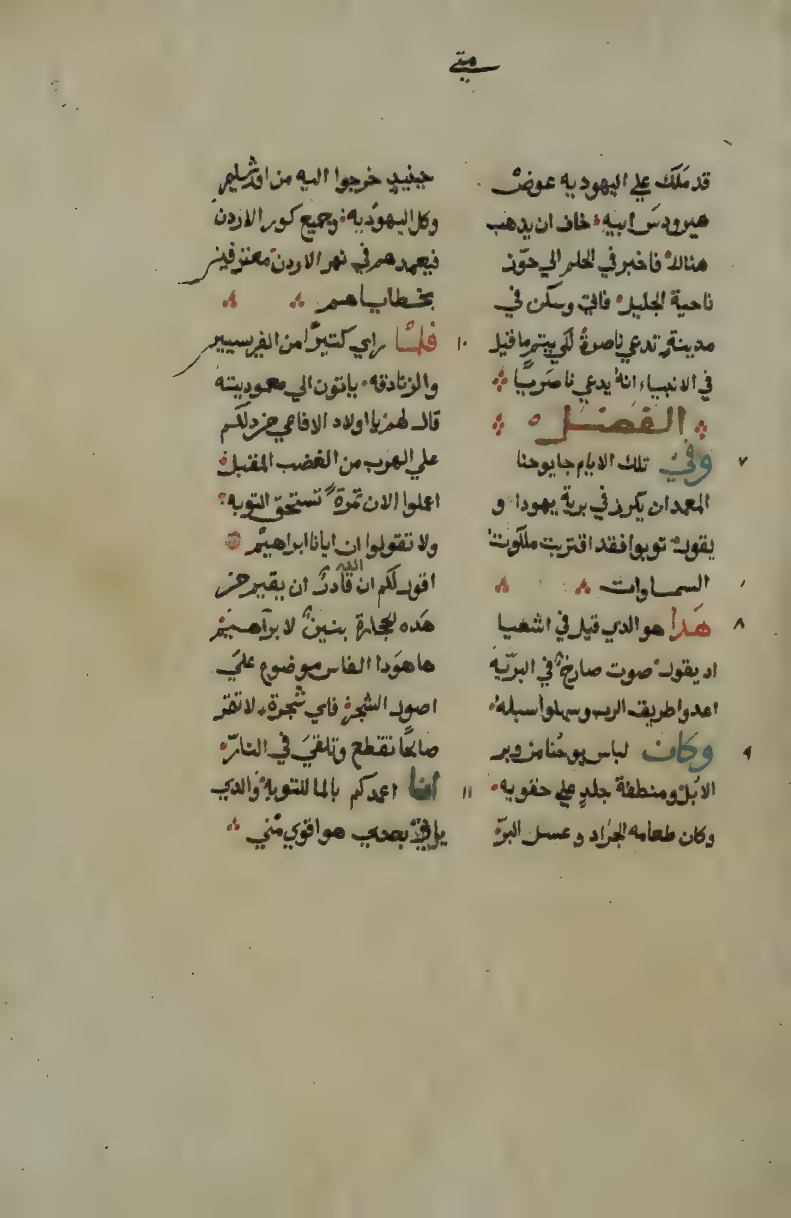 متي
قد ملك علي اليهوديه عوض
هيرودس ابيه خاف ان يدهب
هنالك فاخبر في الحلم الي حوز
ناحية الجليل فاتي وسكن في
مدينة تدعي ناصرة لكي يتم ما قيل
في الانبياء انه يدعي ناصريا
الفصل
٧ وفي تلك الايام جا يوحنا
المعمدان يكرز في برية يهودا و
يقول توبوا فقد اقتربت ملكوت
السماوات
٨ هدا هو الدي قيل في اشعيا
اد يقول صوت صارخ في البريه
اعدوا طريق الرب وسهلوا سبله
٩ وكان لباس يوحنا من وبر
الابل ومنطقة جلد علي حقويه
وكان طعامه الجراد وعسل البر
حينيد خرجوا اليه من اورشليم
وكل اليهوديه وجميع كور الاردن
فيعمدهم في نهر الاردن معترفين
بخطاياهم
١٠ فلما راي كتيرا من الفرسيين
والزنادقه ياتون الي معموديته
قال لهم يا اولاد الافاعي من دلكم
علي الهرب من الغضب المقبل
اعملوا الان تمرة تستحق التوبه
ولا تقولوا ان ابانا ابراهيم
اقول لكم ان الله قادر ان يقيم من
هده الحجارة بنين لابراهيم
ها هودا الفاس موضوع علي
اصول الشجر فاي شجرة لا تتمر
صالحا تقطع وتلقي في النار
١١ انا اعمدكم بالما للتوبه والدي
ياتي بعدي هو اقوي مني